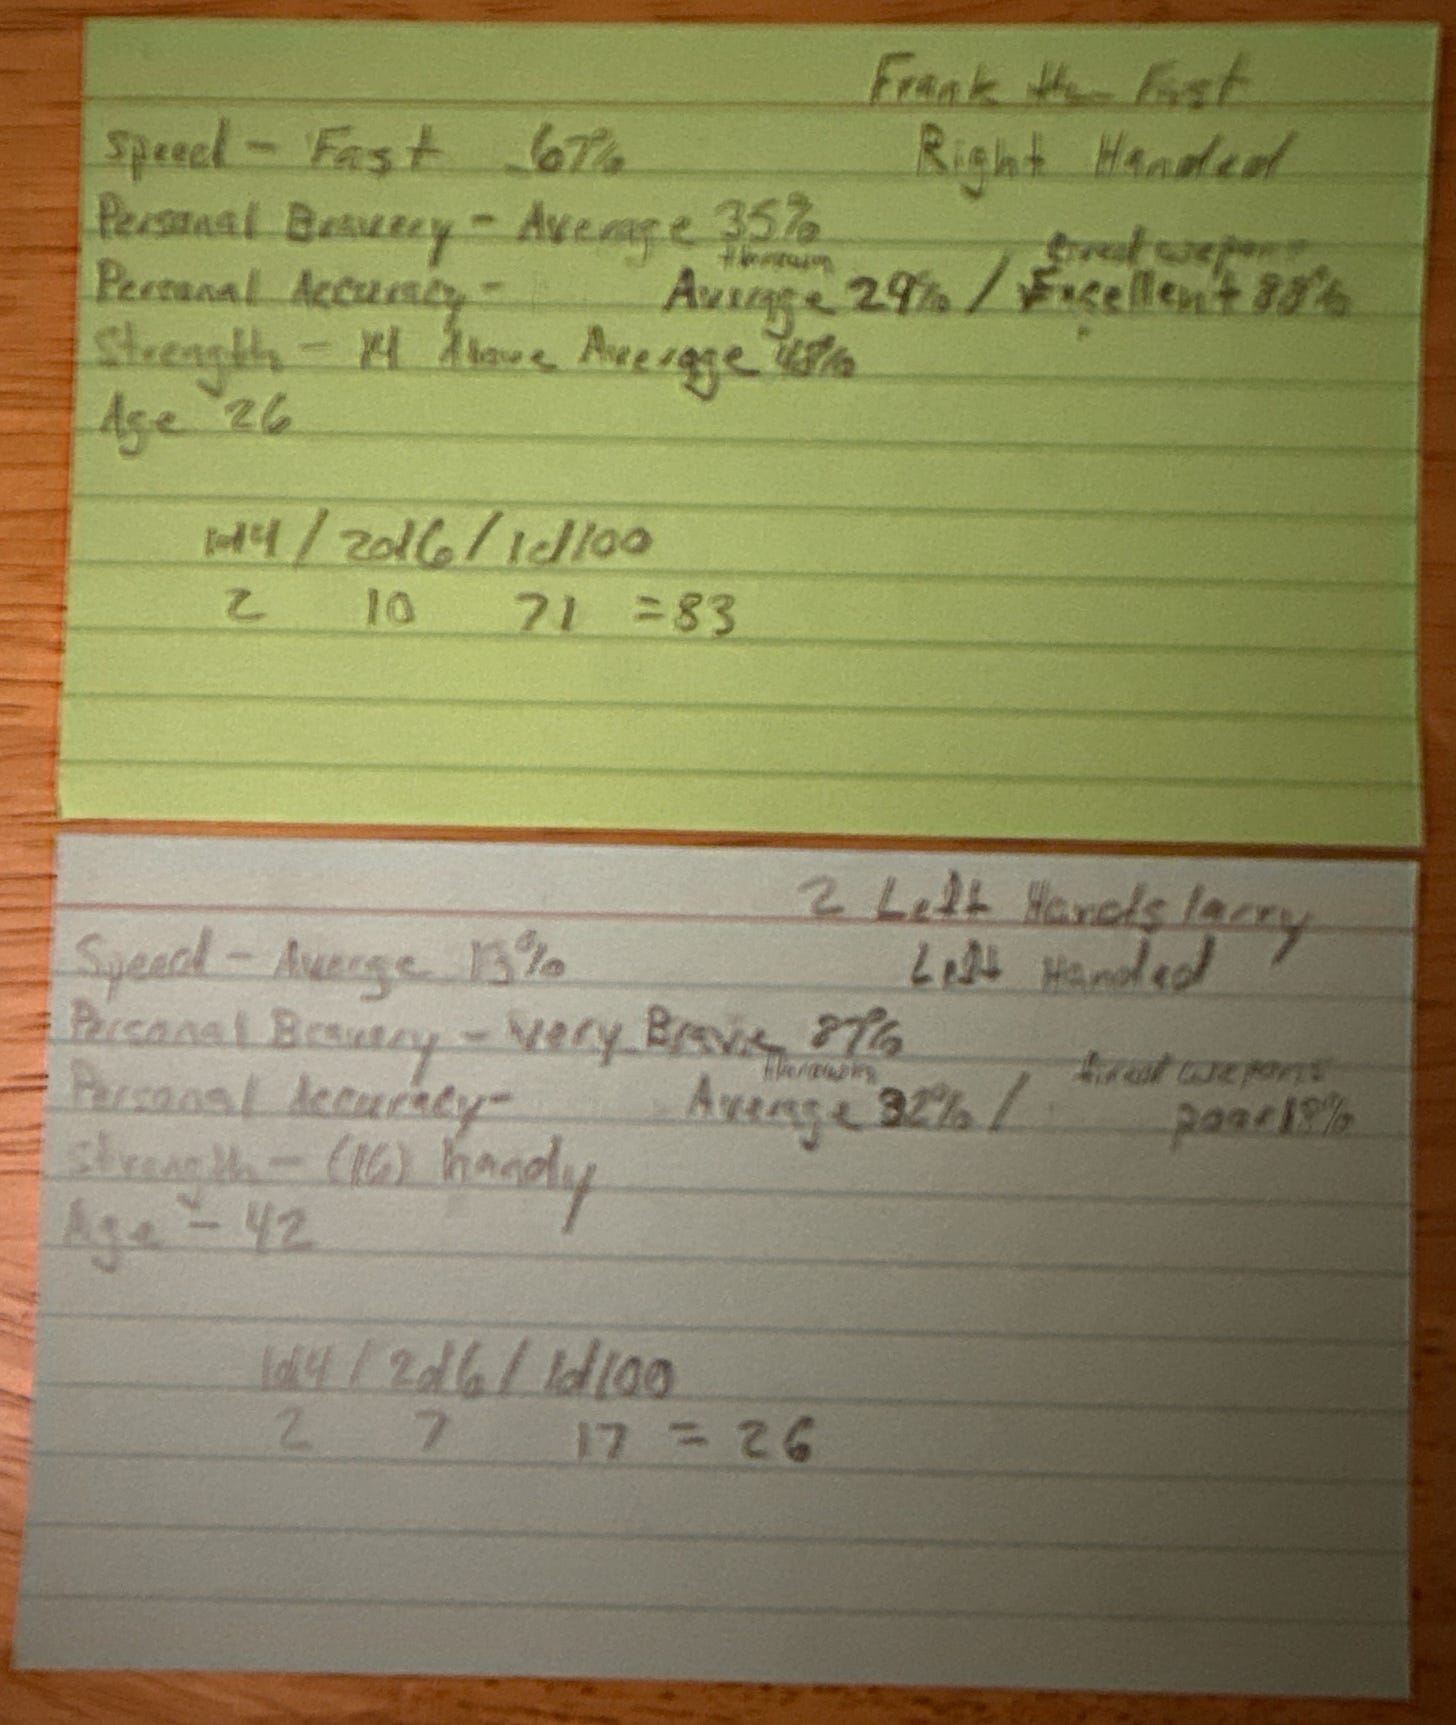 Frank the Fast
Speed - Fast 67%
Right Handed
Personal Bravery - Average 35%
throwing fired weapons
Personal Accuracy - Average 29% / Excellent 88%
Strength - 14 Above Average 48%
Age 26
1d4 / 2d6 / 1d100
2 10 71 = 83
2 Left Hands larry
Speed - Averge 13%
Left Handed
Personal Bravery - Very Brave 87%
throwing fired wepons
Personal Accuracy - Average 32% / poor 18%
Strength - (16) handy
Age - 42
1d4 / 2d6 / 1d100
2 7 17 = 26